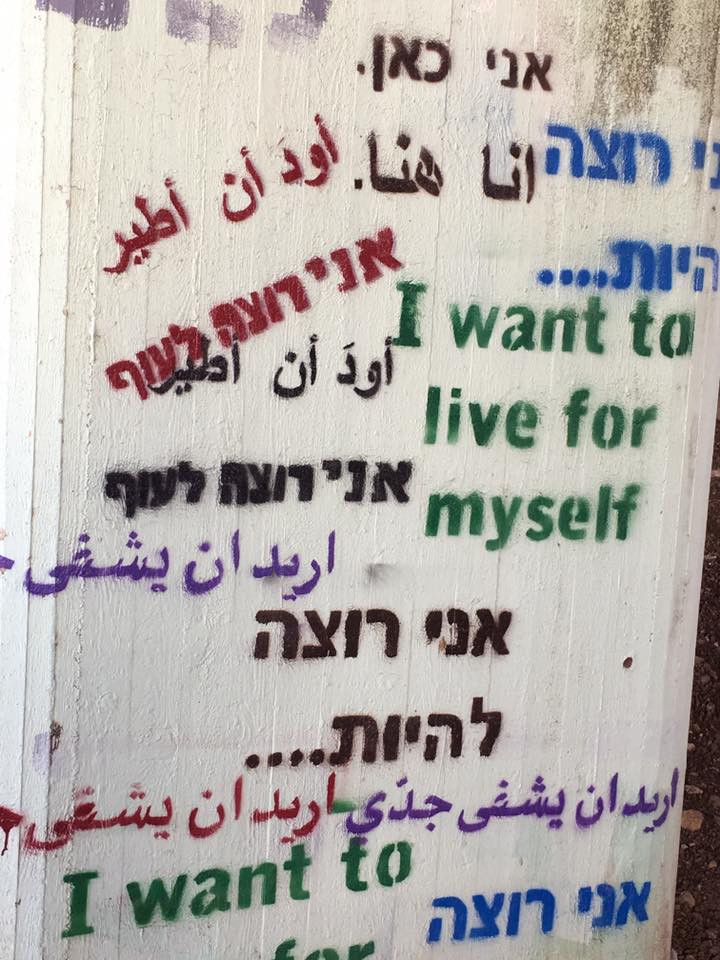 אני כאן.
انا هنا.
אני רוצה
להיות....
أودَ أن أطير
אני רוצה לעוף
أودَ أن أطير
אני רוצה לעוף
I want to
live for
myself
اريد ان يشفى
אני רוצה
להיות....
اريد ان يشفى جدّي
اريد ان يشفى
I want to
for
אני רוצה